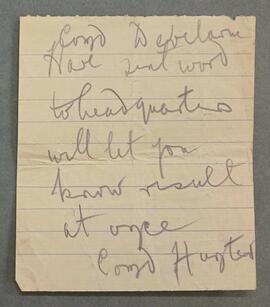 Comd De
Have sent word
to headquarters
will let you
know result
at once
Comd Hunter